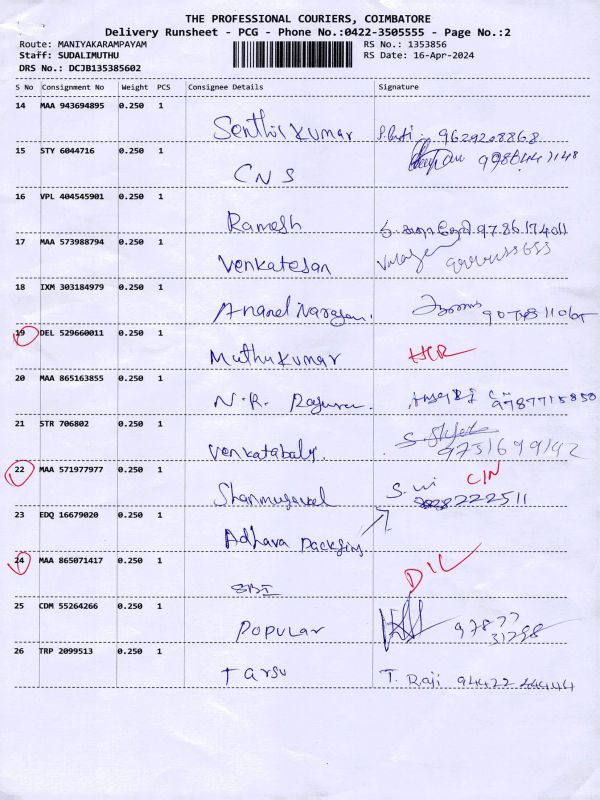 THE PROFESSIONAL COURIERS, COIMBATORE
Delivery Runsheet - PCG - Phone No.:0422-3505555 - Page No.:2
Route: MANIYAKARAMPAYAM RS No.: 1353856
Staff: SUDALIMUTHU RS Date: 16-Apr-2024
DRS No.: DCJB135385602
S No Consignment No Weight PCS Consignee Details Signature
14 MAA 943694895 0.250 1
Senthil Kumar 9629208868
15 STY 6044716 0.250 1
CNS
16 VPL 404545901 0.250 1
Ramesh 9786174011
17 MAA 573988794 0.250 1
Venkatesan
18 IXM 303184979 0.250 1
Anand Narayan.
19 DEL 529660011 0.250 1
Muthukumar
20 MAA 865163855 0.250 1
N.R. 9787715850
21 STR 706802 0.250 1
9751699192
22 MAA 571977977 0.250 1 CIN
Shanmugavel S. 222511
23 EDQ 16679020 0.250 1
Adhava Packging
24 MAA 865071417 0.250 1 DIL
SBI
25 CDM 55264266 0.250 1
Popular 97877
31298
26 TRP 2099513 0.250 1
Tarsu T. Raji 94422 44444